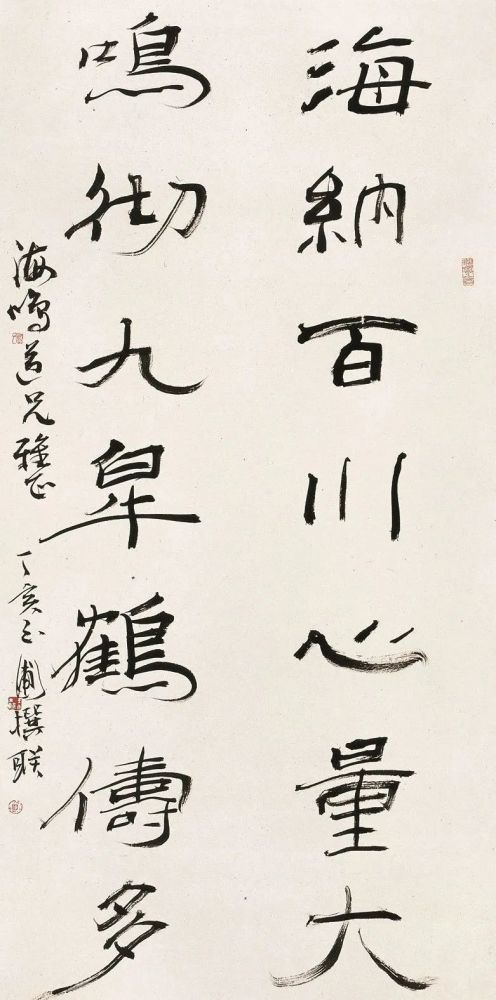 海納百川心量大
鳴彻九皋鶴儔多
海鳴道兄雅正 丁亥玉甫撰联